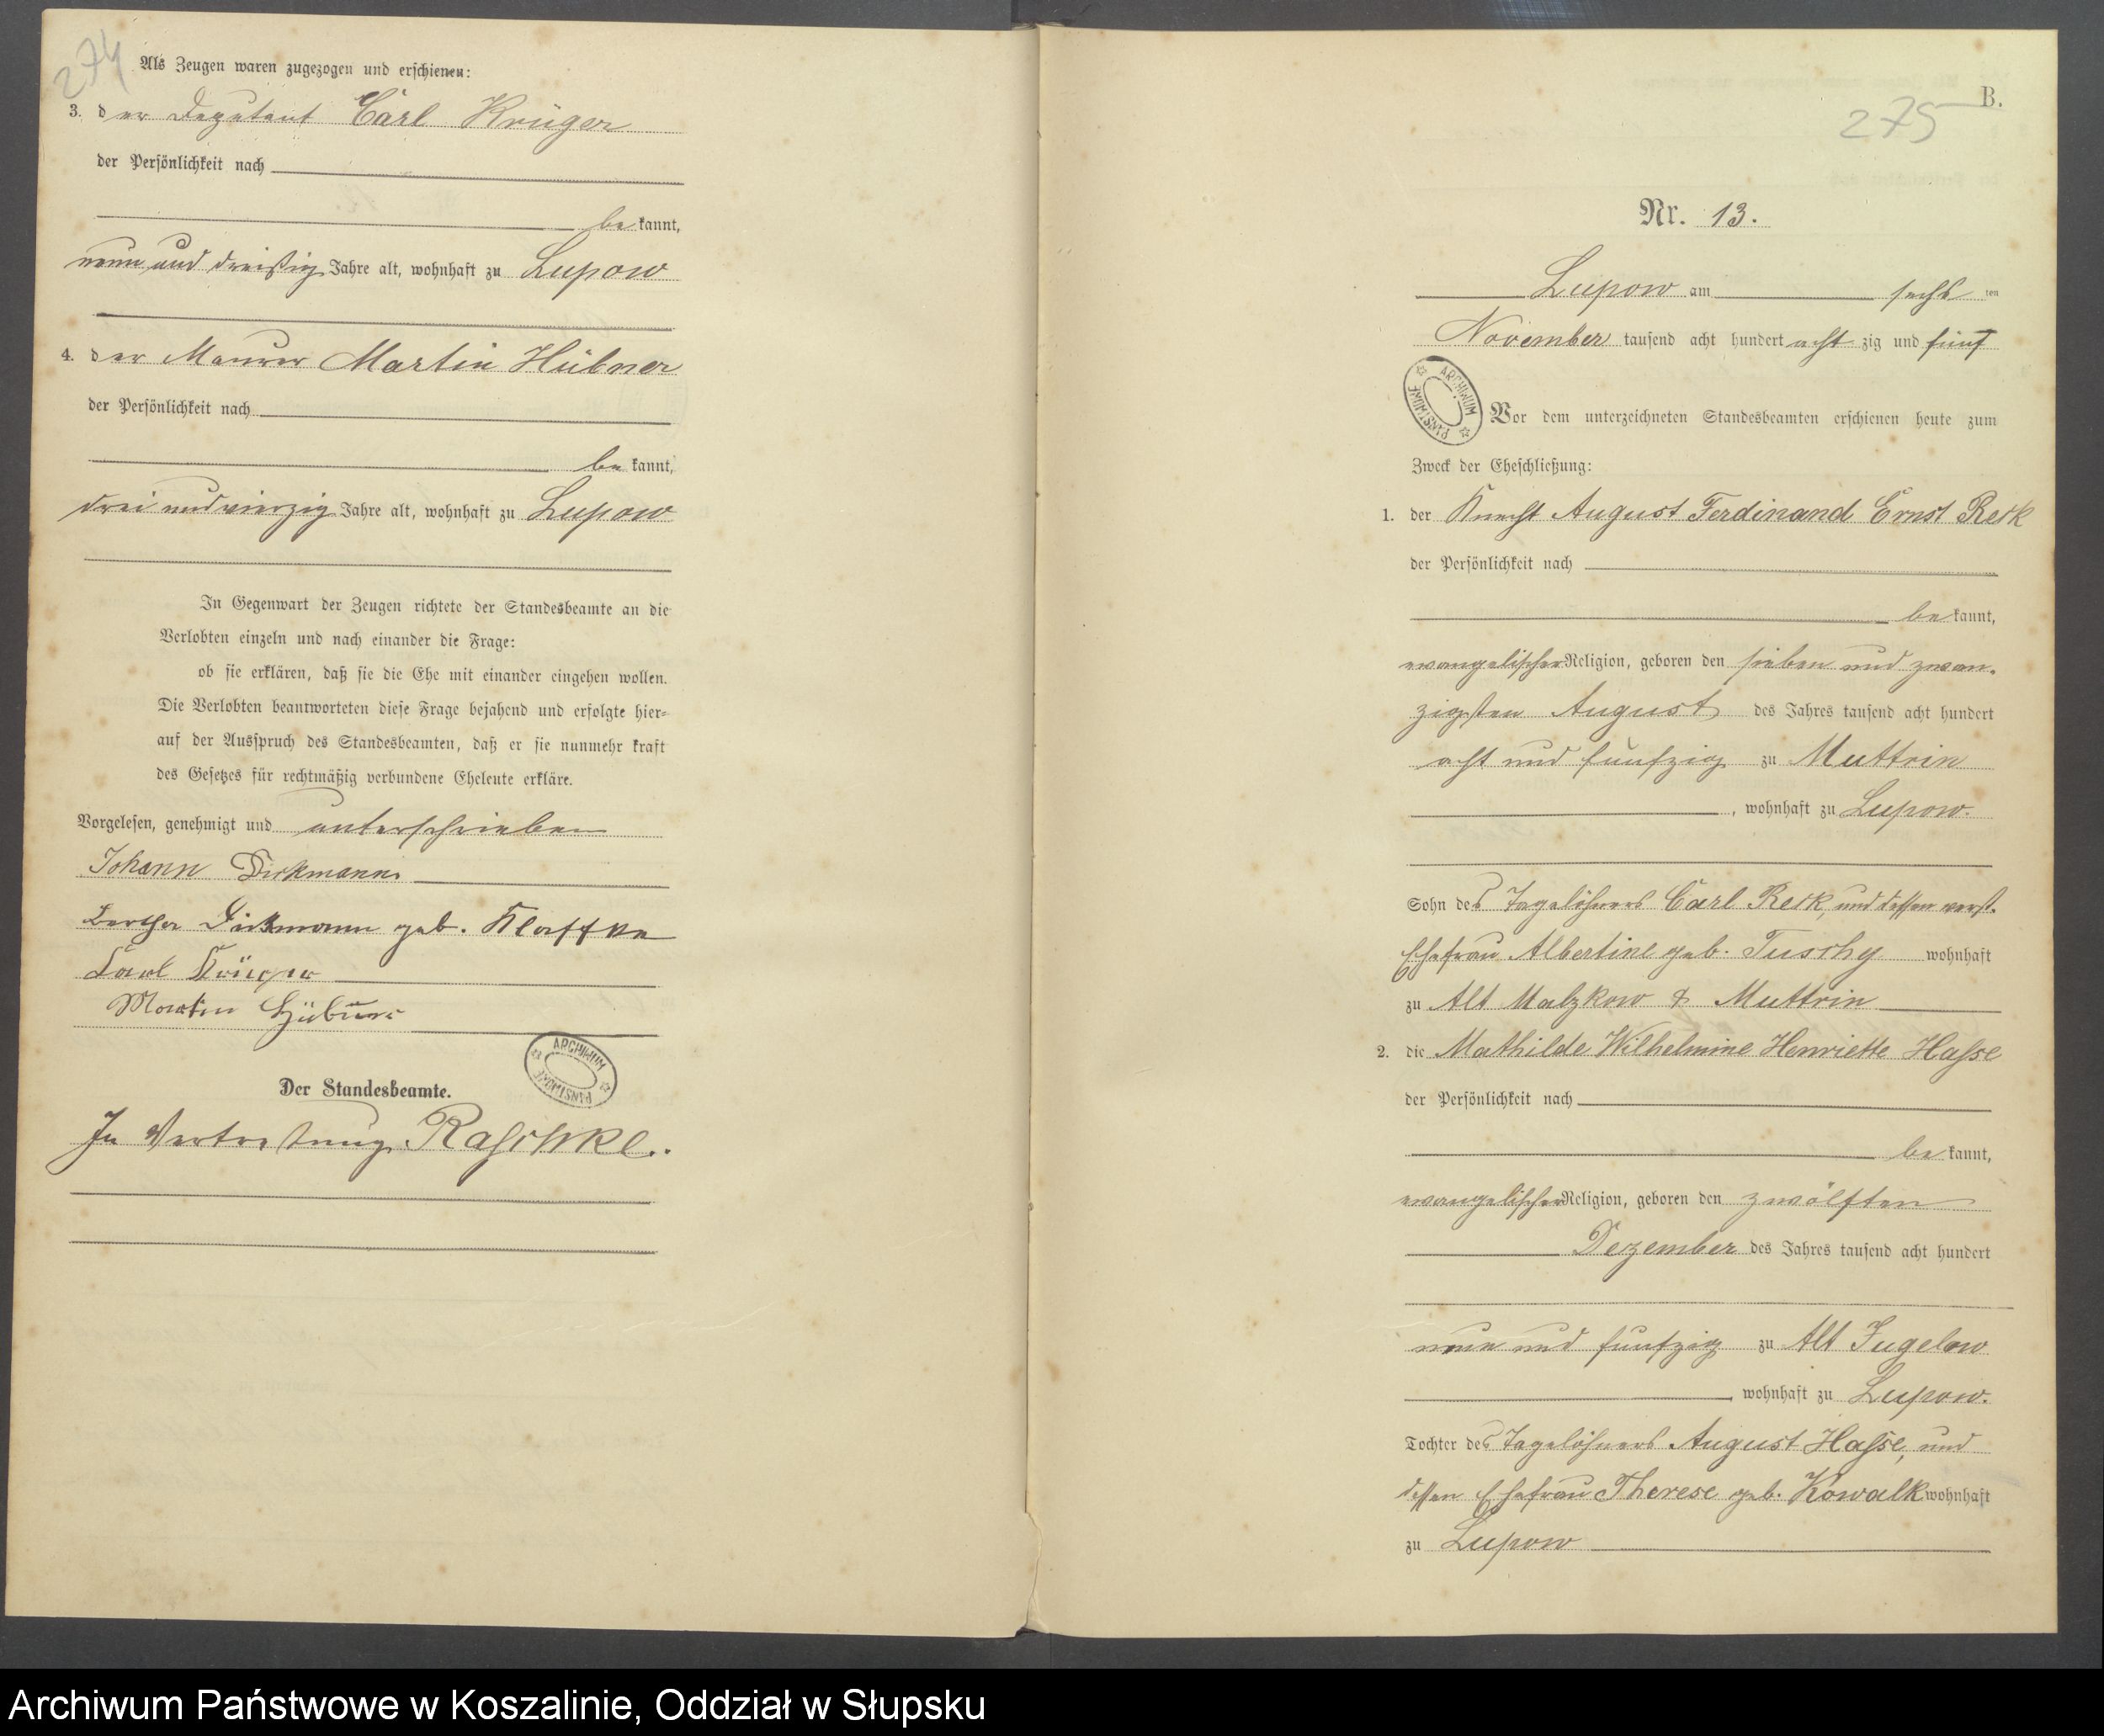 274
Als Zeugen waren zugezogen und erschienen:
3. der Deputant Carl Krüger
der Persönlichkeit nach
bekannt,
neun und dreißig Jahre alt, wohnhaft zu Lupow
4. der Maurer Martin Hübner
der Persönlichkeit nach
bekannt,
drei und vierzig Jahre alt, wohnhaft zu Lupow
In Gegenwart der Zeugen richtete der Standesbeamte an die
Verlobten einzeln und nach einander die Frage:
ob sie erklären, daß sie die Ehe mit einander eingehen wollen.
Die Verlobten beantworteten diese Frage bejahend und erfolgte hier-
auf der Ausspruch des Standesbeamten, daß er sie nunmehr kraft
des Gesetzes für rechtmäßig verbundene Eheleute erkläre.
Vorgelesen, genehmigt und unterschrieben
Johann Dirkmann
Bertha Dirkmann geb. Klaffke
Carl Krüger
Martin Hübner
ARCHIWUM PAŃSTWOWE
Der Standesbeamte.
In Vertretung Raschke.
B.
275
Nr. 13.
Lupow am sechsten
November tausend acht hundert achtzig und fünf
ARCHIWUM PAŃSTWOWE
Vor dem unterzeichneten Standesbeamten erschienen heute zum
Zweck der Eheschließung:
1. der Knecht August Ferdinand Ernst Resk
der Persönlichkeit nach
bekannt,
evangelischer Religion, geboren den sieben und zwan-
zigsten August des Jahres tausend acht hundert
acht und fünfzig zu Muttrin
, wohnhaft zu Lupow.
Sohn des Tagelöhners Carl Resk, und dessen verst.
Ehefrau Albertine geb. Tuschy wohnhaft
zu Alt Malzkow & Muttrin
2. die Mathilde Wilhelmine Henriette Hasse
der Persönlichkeit nach
bekannt,
evangelischer Religion, geboren den zwölften
Dezember des Jahres tausend acht hundert
neun und fünfzig zu Alt Jugelow
, wohnhaft zu Lupow.
Tochter des Tagelöhners August Hasse, und
dessen Ehefrau Therese geb. Kowalk wohnhaft
zu Lupow
Archiwum Państwowe w Koszalinie, Oddział w Słupsku